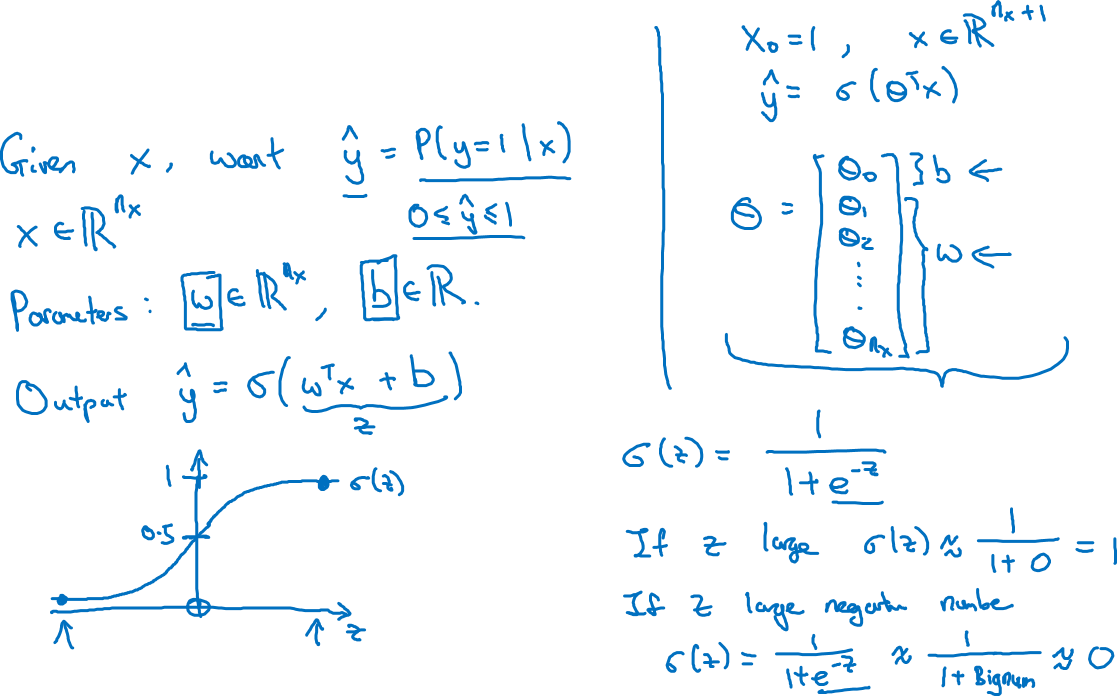 Given x, want ŷ = P(y=1|x)
x ∈ ℝ^{n_x}
0 ≤ ŷ ≤ 1
Parameters: w ∈ ℝ^{n_x}, b ∈ ℝ.
Output ŷ = σ(w^T x + b)
z
1
σ(z)
0.5
z
x_0 = 1, x ∈ ℝ^{n_x+1}
ŷ = σ(θ^T x)
θ = [θ_0 θ_1 θ_2 ⋮ θ_{n_x}]
} b ←
} w ←
σ(z) = 1/(1+e^{-z})
If z large σ(z) ≈ 1/(1+0) = 1
If z large negative number
σ(z) = 1/(1+e^{-z}) ≈ 1/(1+Bignum) ≈ 0